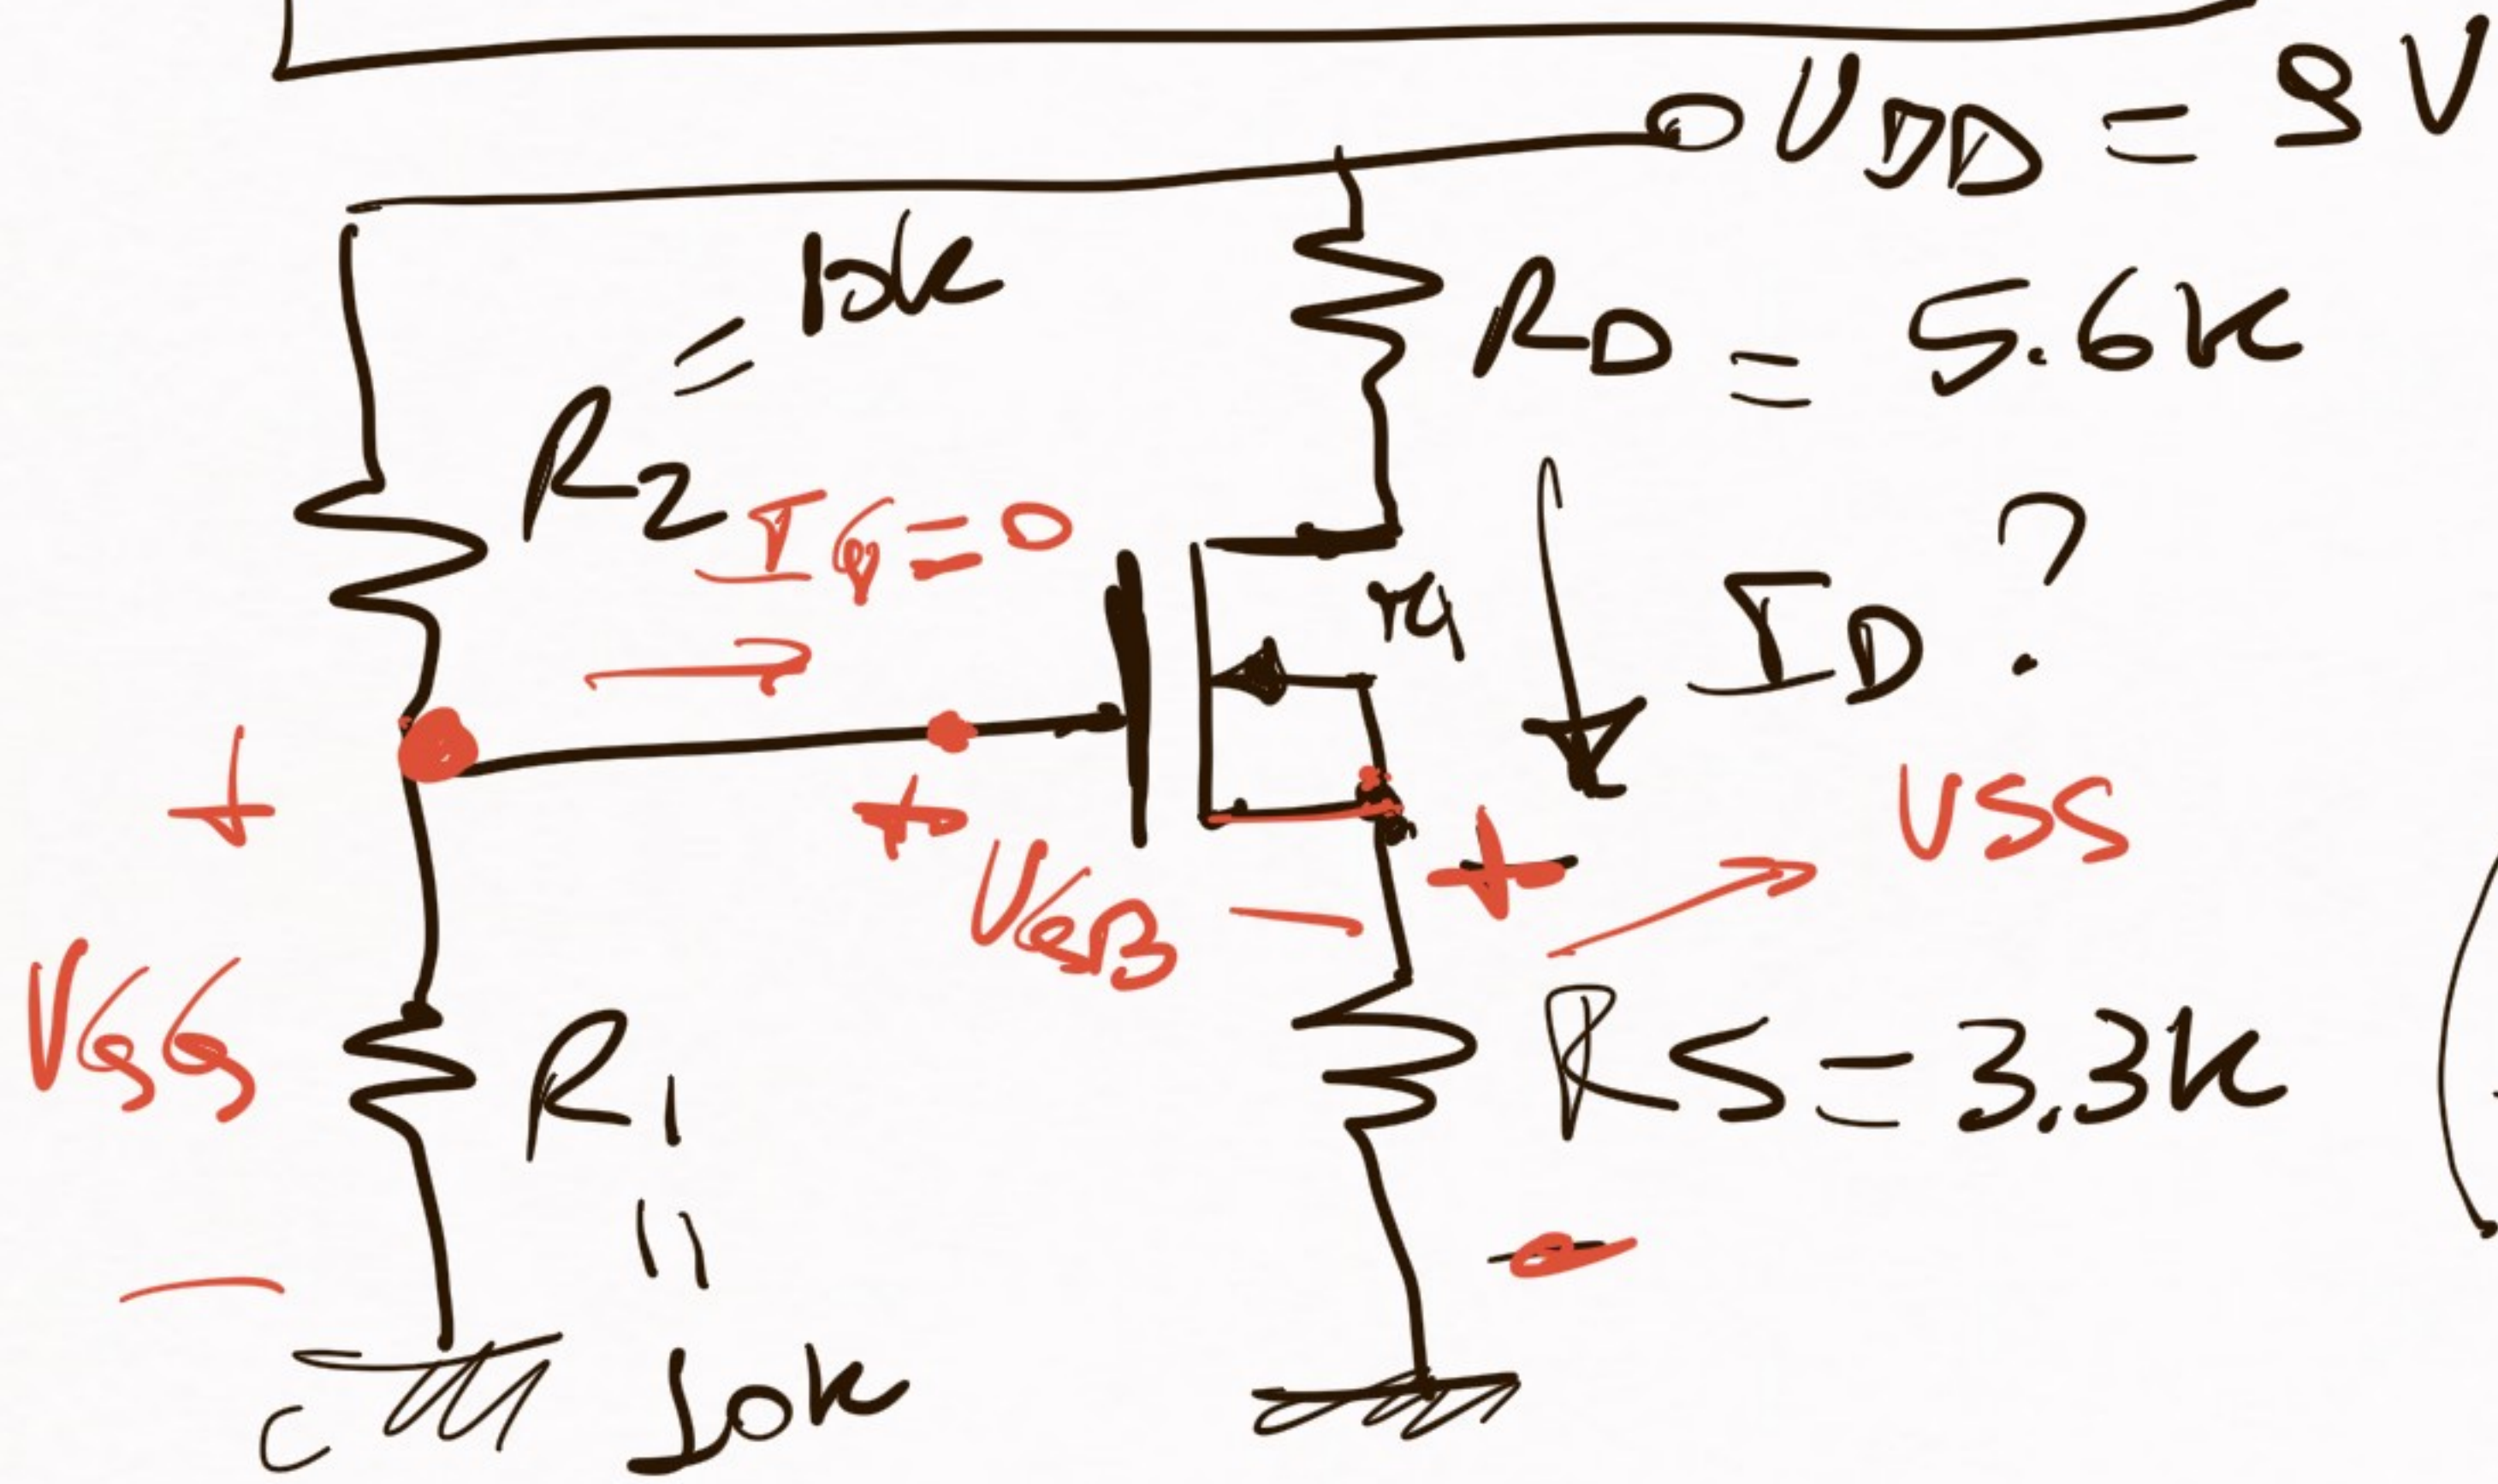 VDD = 9V
R2 = 10k
RD = 5.6K
IG=0
ID ?
+
+ VGB −
+
VSS
VGG
R1
=
10k
RS=3.3K
−
−